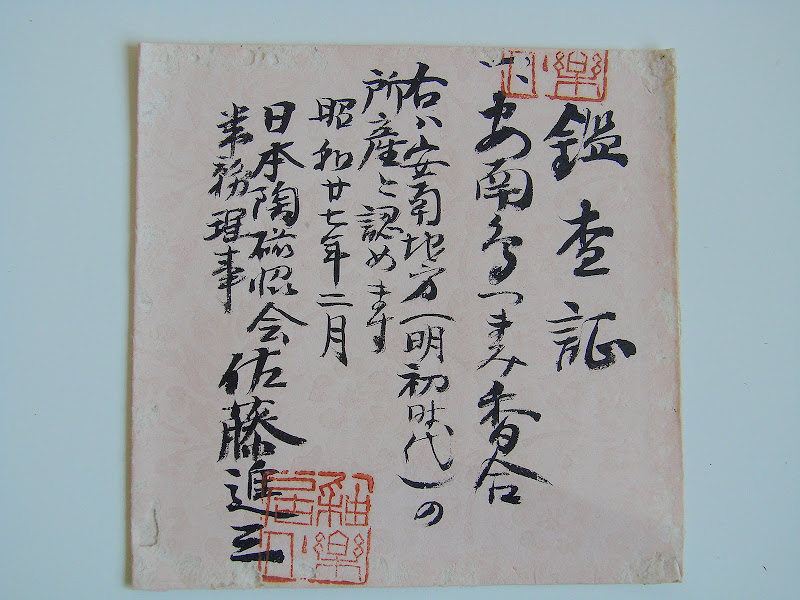 鑑査証
安南鳥つまみ香合
右ハ安南地方(明初時代)の
所産と認めます
昭和廿七年二月
日本陶磁協会
常務理事
佐藤進三
樂
印
釉樂
居印